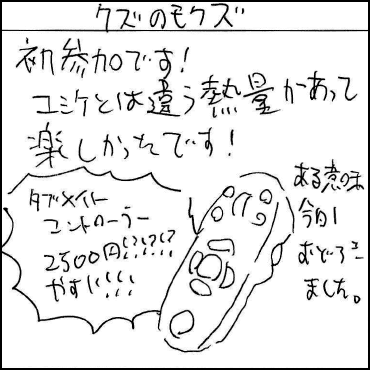 クズのモクズ
初参加です!
コミケとは違う熱量があって
楽しかったです!
タブメイト
コントローラー
2500円!?!?!?
やすい!!!
ある意味
今日1
おどろき
ました。